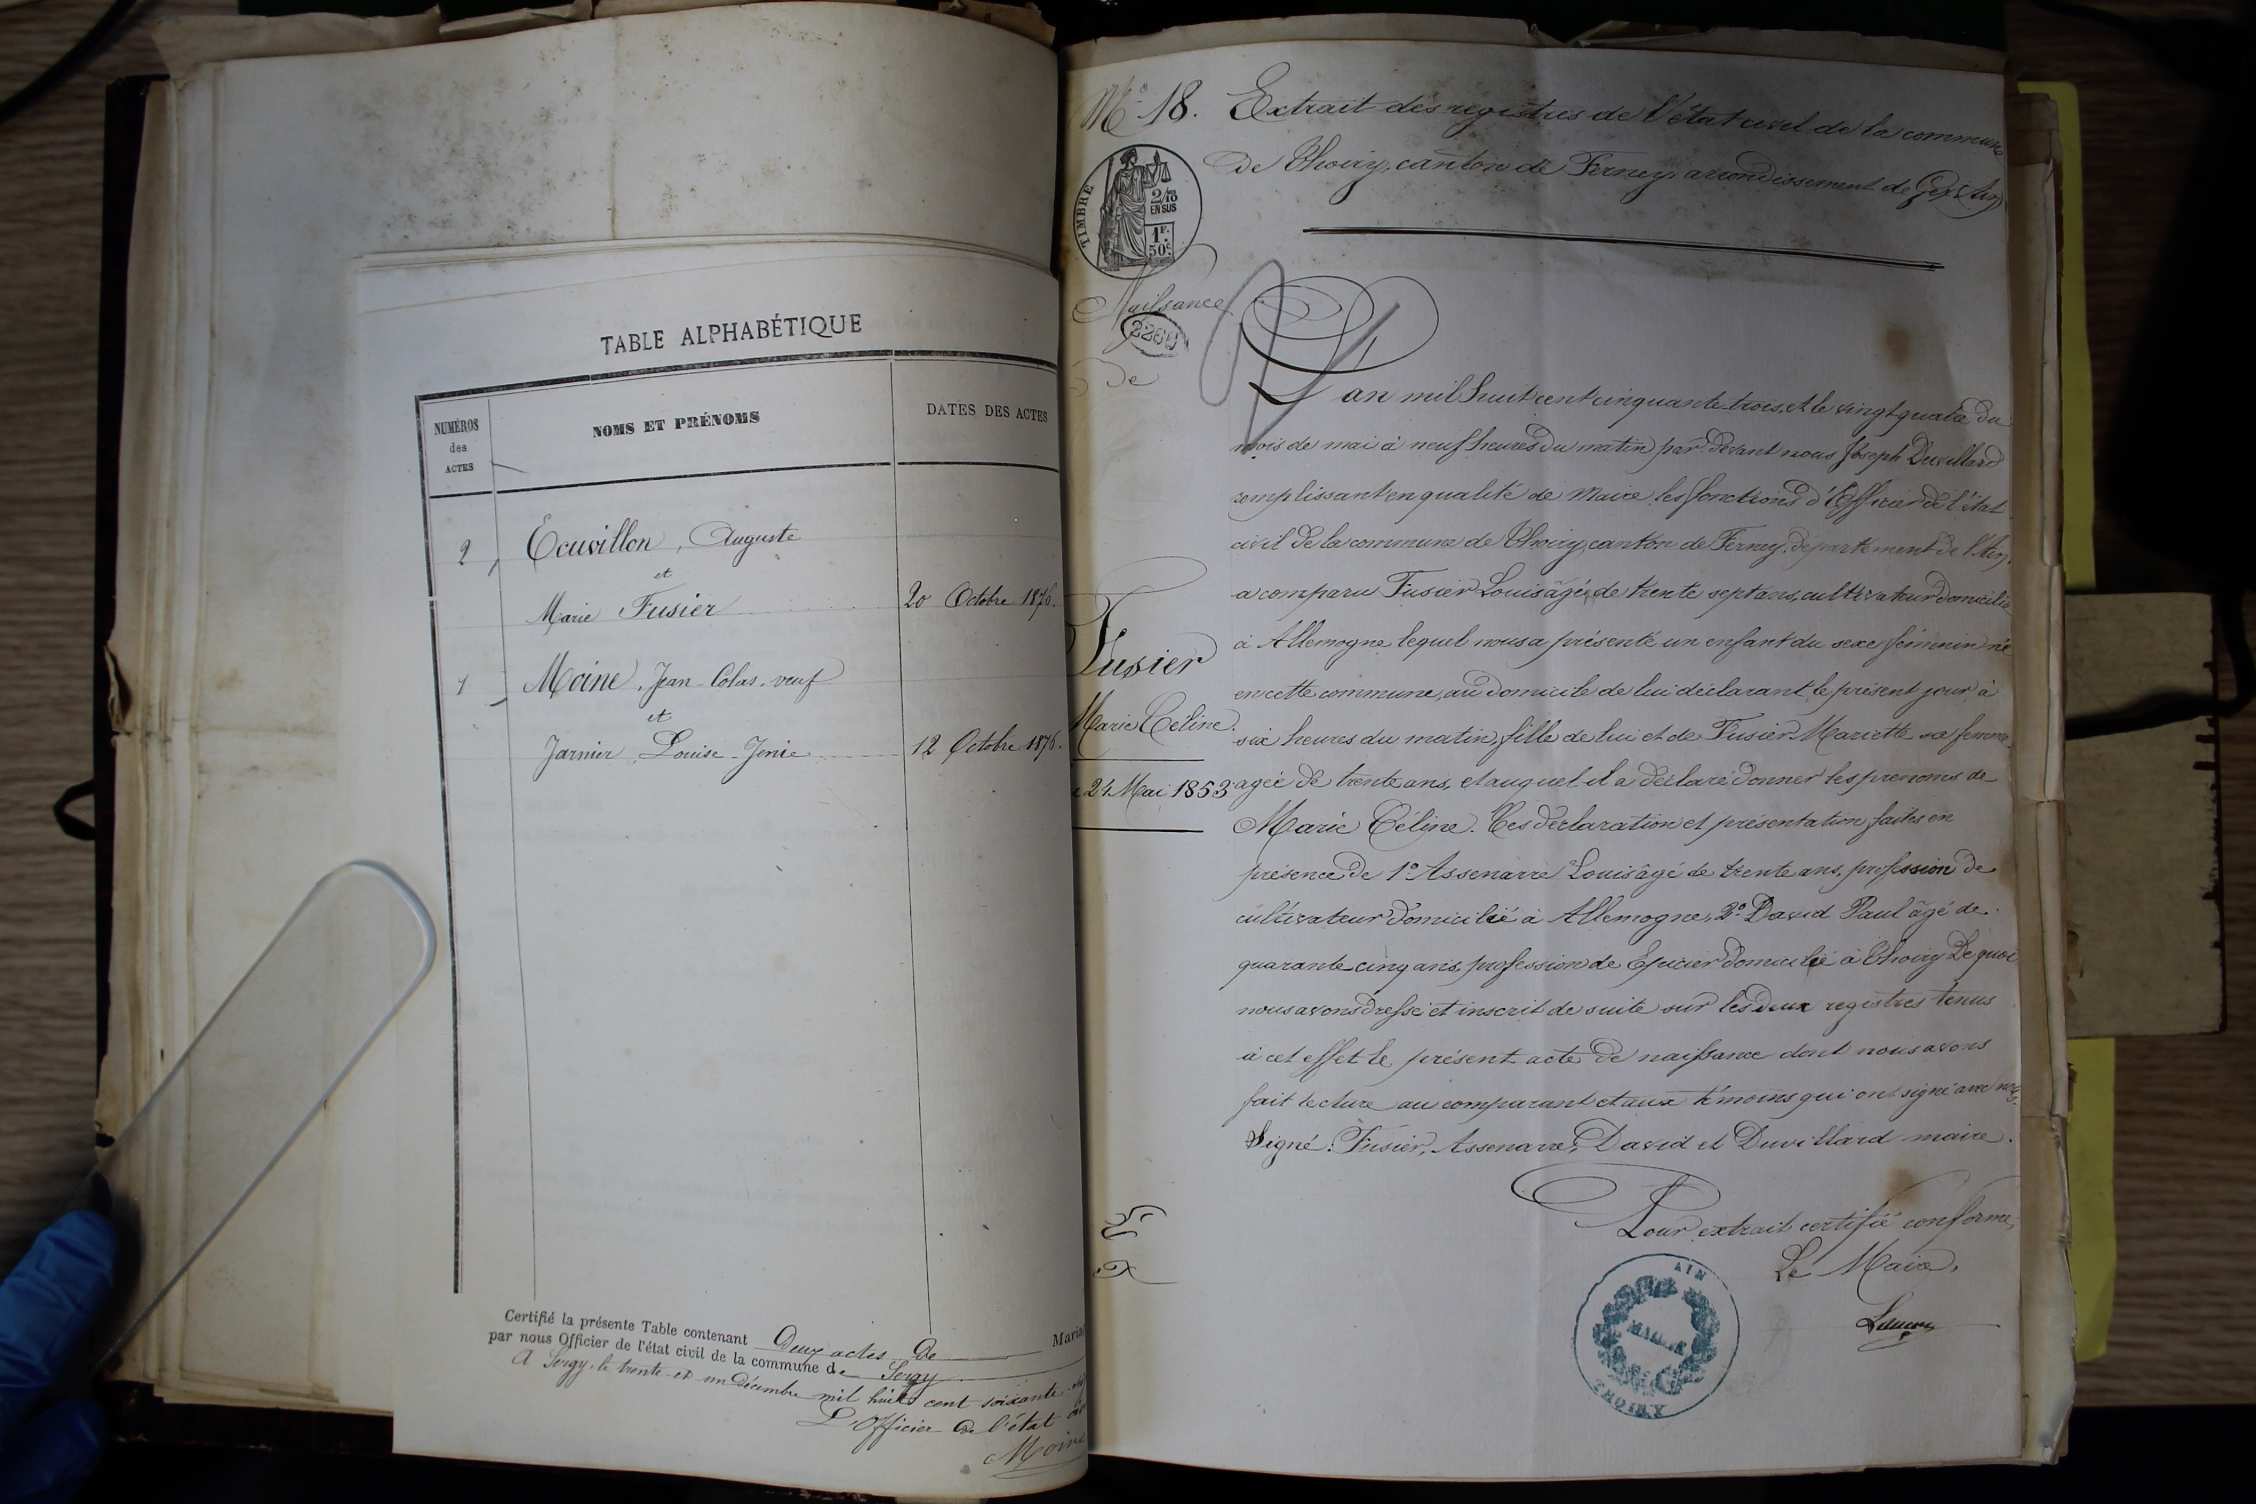 TABLE ALPHABÉTIQUE
NUMÉROS
des
ACTES
NOMS ET PRÉNOMS
DATES DES ACTES
2
Ecuvillon, Auguste
et
Marie Fusier
20 Octobre 1876.
1
Moine, Jean-Colas, veuf
et
Jarnier, Louise-Jenie
12 Octobre 1876.
Certifié la présente Table contenant Deux actes de
par nous Officier de l'état civil de la commune de Sergy
A Sergy, le trente et un Décembre mil huit cent soixante
L'Officier de l'état
Moine
N° 18. Extrait des registres de l'état civil de la commune
de Thoiry, canton de Ferney, arrondissement de Gex (Ain)
TIMBRE
2/10
EN SUS
1F.
50c.
Naissance
2260
De
Fusier
Marie Céline.
24 Mai 1853
L'an mil huit cent cinquante-trois, et le vingt quatre du
mois de mai à neuf heures du matin par devant nous Joseph Duvillard
remplissant en qualité de Maire les fonctions d'Officier de l'état
civil de la commune de Thoiry, canton de Ferney, département de l'Ain,
a comparu Fusier Louis âgé de trente sept ans, cultivateur domicilié
à Allemogne lequel nous a présenté un enfant du sexe féminin né
en cette commune, au domicile de lui déclarant, le présent jour à
six heures du matin, fille de lui et de Fusier Mariette sa femme
agée de trente ans, et auquel il a déclaré donner les prenoms de
Marie Céline. Ces déclaration et présentation faites en
présence de 1° Assenarre Louis âgé de trente ans, profession de
cultivateur domicilié à Allemogne, 2° David Paul âgé de
quarante cinq ans, profession de Epicier domicilié à Thoiry De quoi
nous avons dressé et inscrit de suite sur les deux registres tenus
à cet effet le présent acte de naissance dont nous avons
fait lecture au comparant et aux témoins qui ont signé avec nous.
Signé: Fusier, Assenarre, David et Duvillard maire.
Pour extrait certifié conforme,
Le Maire,
AIN
MAIRIE
THOIRY